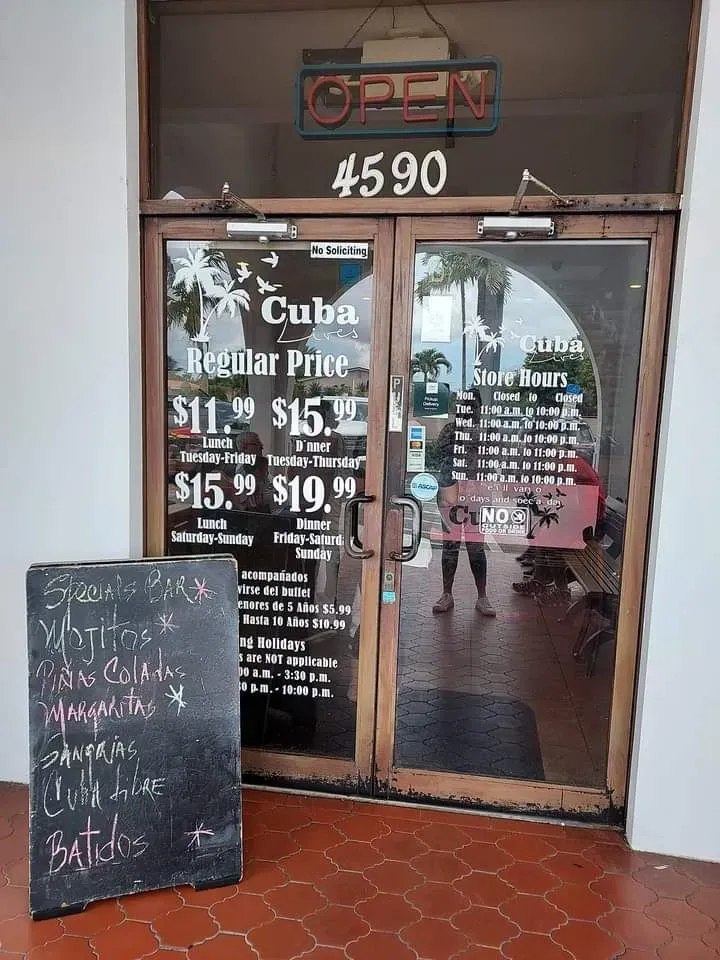 OPEN
4590
No Soliciting
Cuba
Lives
Regular Price
$11.99 $15.99
Lunch
Tuesday-Friday
D'nner
Tuesday-Thursday
$15.99 $19.99
Lunch
Saturday-Sunday
Dinner
Friday-Saturd
Sunday
acompañados
virse del buffet
enores de 5 Años $5.99
Hasta 10 Años $10.99
ng Holidays
s are NOT applicable
00 a.m. - 3:30 p.m.
0 p.m. - 10:00 p.m.
Cuba
Lives
Store Hours
Mon. Closed to Closed
Tue. 11:00 a.m. to 10:00 p.m.
Wed. 11:00 a.m. to 10:00 p.m.
Thu. 11:00 a.m. to 10:00 p.m.
Fri. 11:00 a.m. to 11:00 p.m.
Sat. 11:00 a.m. to 11:00 p.m.
Sun. 11:00 a.m. to 10:00 p.m.
vary o
o days and
Cu
NO
OUTSIDE
FOOD OR DRINK
Pickup
Delivery
VISA
ASCAP
SpeciAls BAR
Mojitos
Piñas Coladas
MARGARITAS
SANGRIAS
Cuba Libre
BAtidos